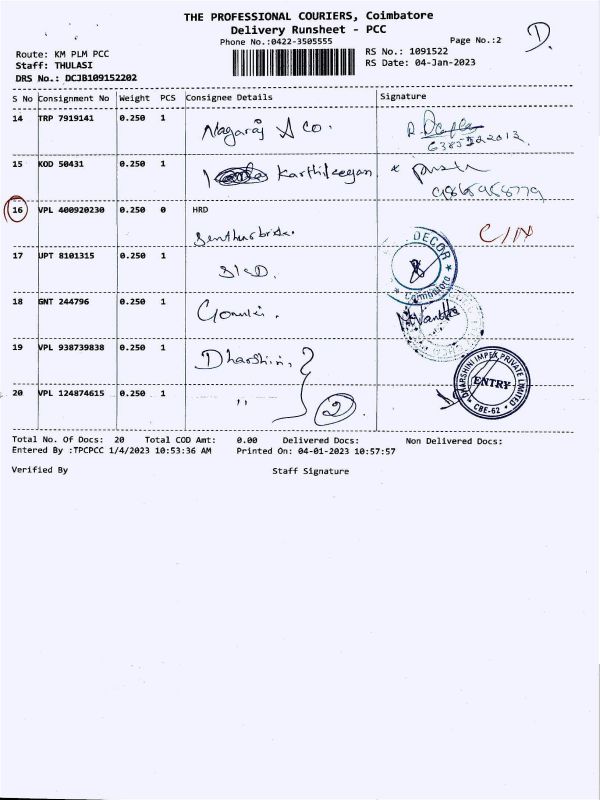 THE PROFESSIONAL COURIERS, Coimbatore
Delivery Runsheet - PCC
Phone No.:0422-3505555
Page No.:2
D.
Route: KM PLM PCC
Staff: THULASI
DRS No.: DCJB109152202
RS No.: 1091522
RS Date: 04-Jan-2023
S No Consignment No Weight PCS Consignee Details Signature
14 TRP 7919141 0.250 1 Nagaraj & Co.
15 KOD 50431 0.250 1 Karthikeyan
16 VPL 400920230 0.250 0 HRD
17 UPT 8101315 0.250 1
DECOR
Coimbatore
18 GNT 244796 0.250 1
19 VPL 938739838 0.250 1 Dharshini,
20 VPL 124874615 0.250 1 " 2
DHARSHINI IMPEX PRIVATE LIMITED
ENTRY
CBE-62
Total No. Of Docs: 20 Total COD Amt: 0.00 Delivered Docs: Non Delivered Docs:
Entered By :TPCPCC 1/4/2023 10:53:36 AM Printed On: 04-01-2023 10:57:57
Verified By Staff Signature